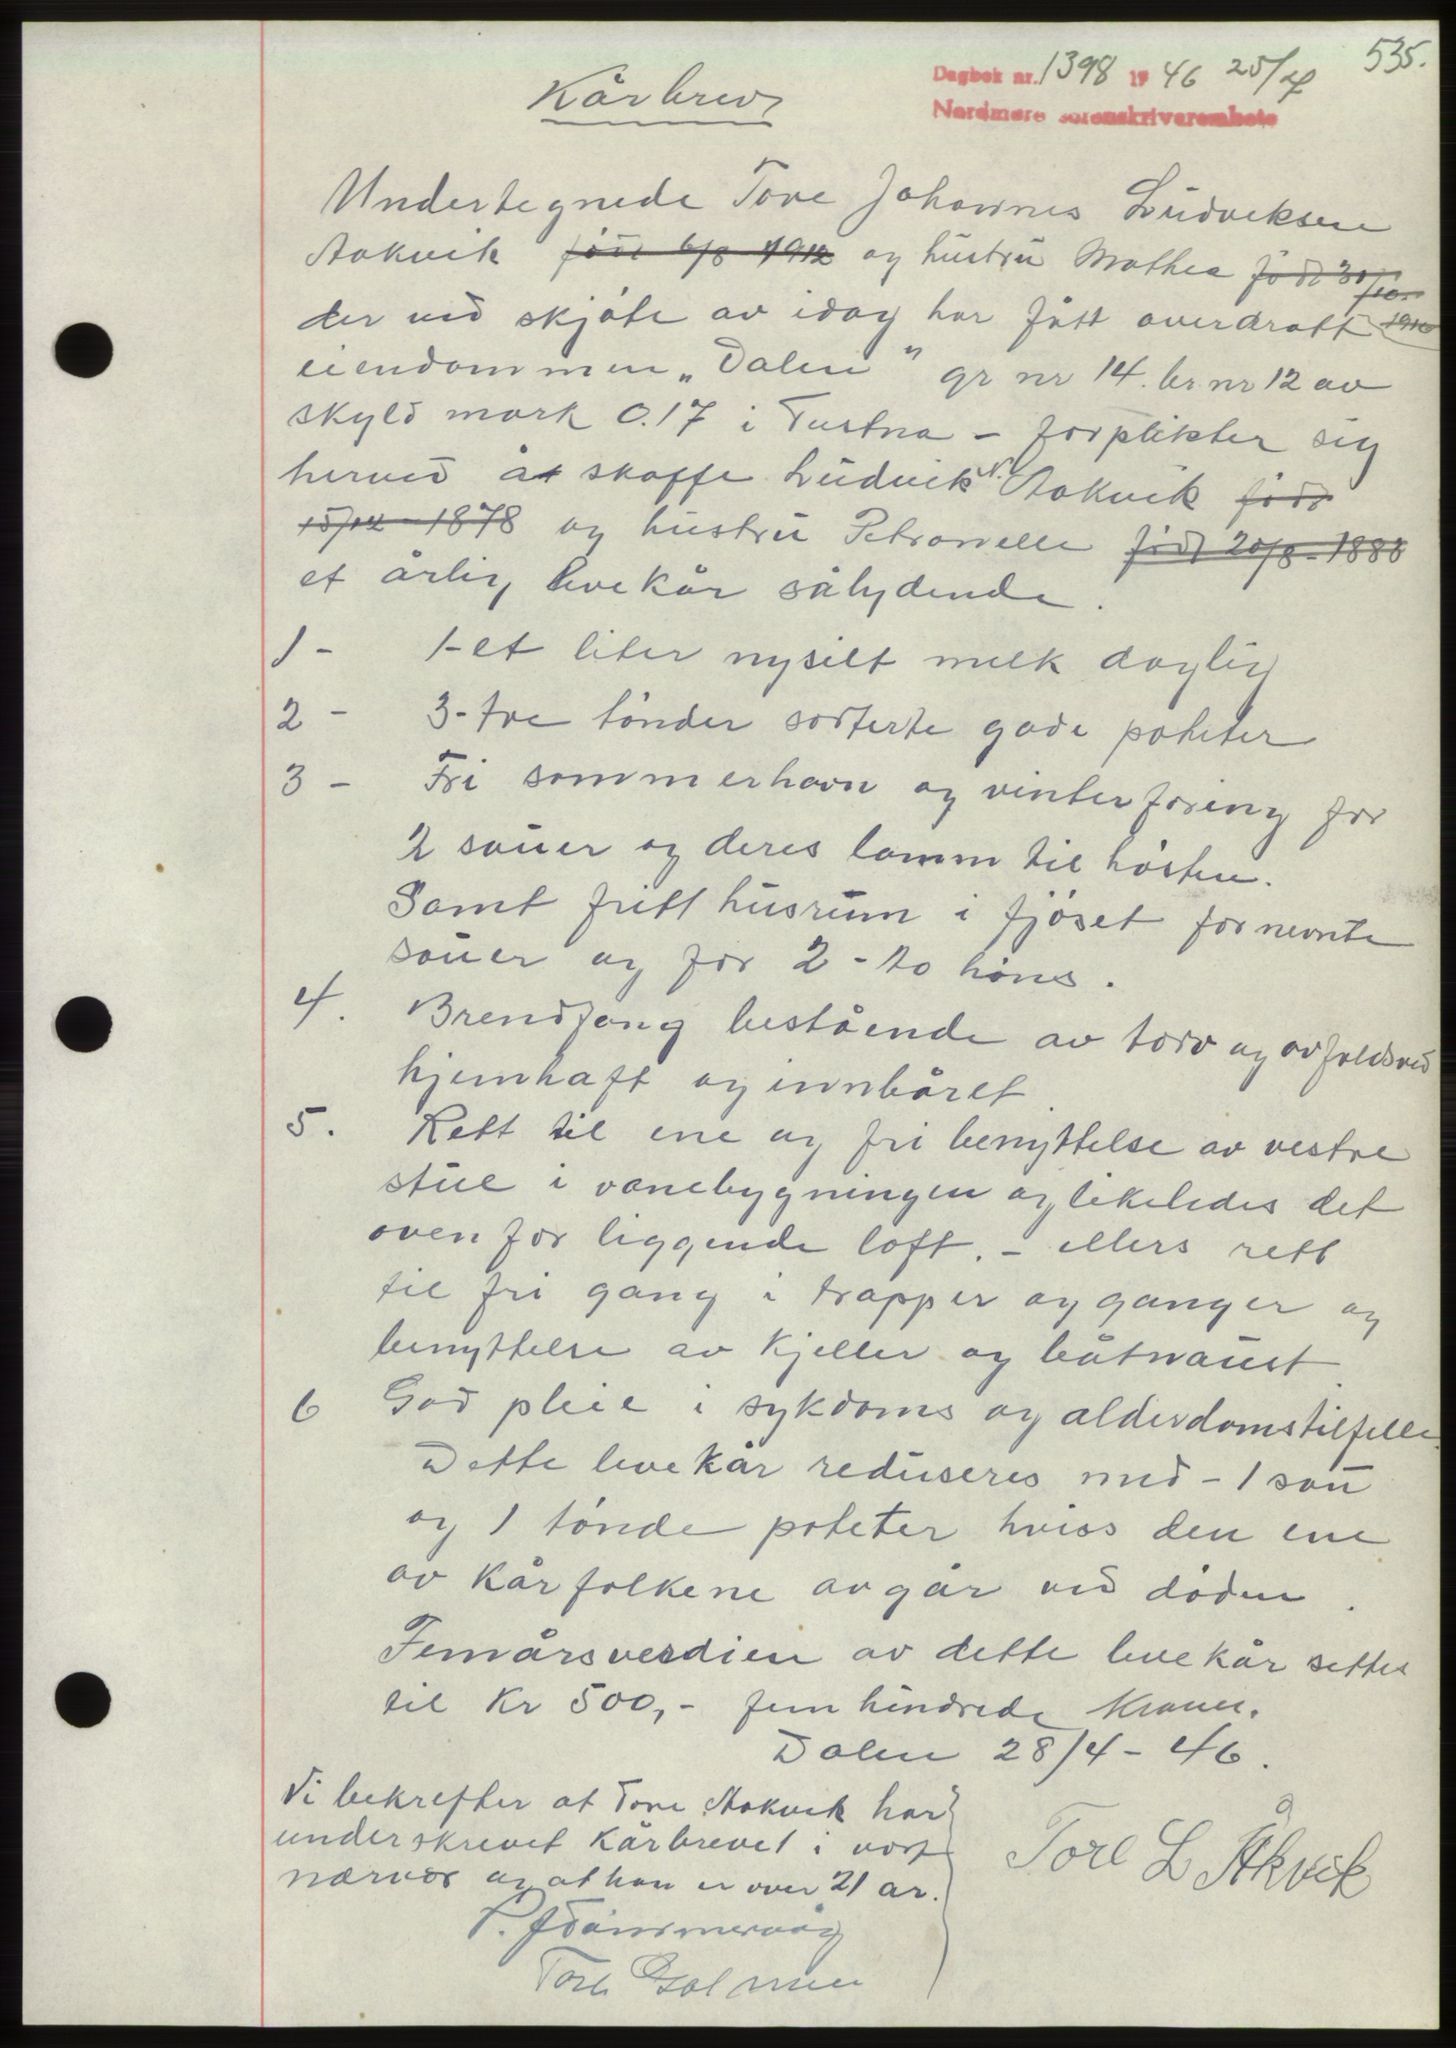 535.
Dagbok nr. 1398 1946 25/7
Nordmøre sorenskriverembete
Kårbrev
Undertegnede Tore Johannes Ludveksen
Aakvik født 6/8 1912 og hustru Mathea født 30/10 1916
der ved skjøte av idag har fått overdratt
eiendommen „Dalen" gr nr 14. br nr 12 av
skyld mark 0.17 i Tustna – forplikter sig
herved at skaffe Ludvik N. Aakvik født
15/12 – 1878 og hustru Petronelle født 20/8 – 1888
et årlig levekår sålydende.
1 – 1 – et liter nysilt melk daglig
2 – 3 – tre tønder sorterte gode poteter
3 – Fri sommerhavn og vinterforing for
2 sauer og deres lamm til høsten.
Samt fritt husrum i fjøset for nevnte
sauer og for 2 – to høns.
4. Brendfang bestående av torv og avfaldsved
hjemhaft og innbåret
5. Rett til ene og fri benyttelse av vestre
stue i vånebygningen og likeledes det
oven for liggende loft. – ellers rett
til fri gang i trapper og ganger og
benyttelse av kjeller og båtnaust
6 God pleie i sykdoms og alderdomstilfelle.
Dette levekår reduseres med – 1 sau
og 1 tønde poteter hviss den ene
av kårfolkene avgår ved døden.
Femårsverdien av dette levekår settes
til Kr 500,- fem hundrede kroner.
Dalen 28/4 – 46.
Vi bekrefter at Tore Aakvik har
underskrevet kårbrevet i vort
nærvær og at han er over 21 år.
Tore L Åkvik
P.
Tore